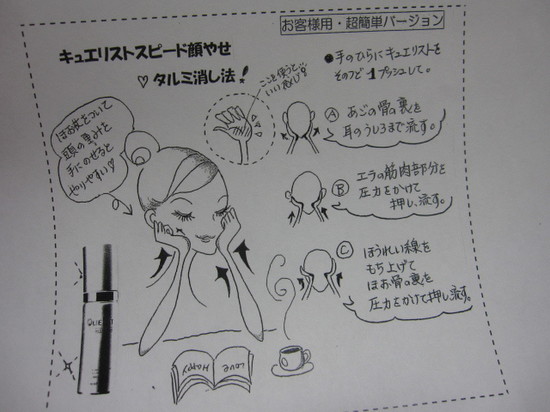 お客様用・超簡単バージョン
キュエリストスピード顔やせ
♡タルミ消し法!
ここを使うと…
いい感じ!
●手のひらにキュエリストを
そのつど1プッシュして。
Ⓐ あごの骨の裏を
耳のうしろまで流す。
ほお杖をついて
頭の重みを
手にのせると
やりやすい♡
Ⓑ エラの筋肉部分を
圧力をかけて
押し、流す。
Ⓒ ほうれい線を
もち上げて
ほお骨の裏を
圧力をかけて押し流す。
LOVE
HAPPY